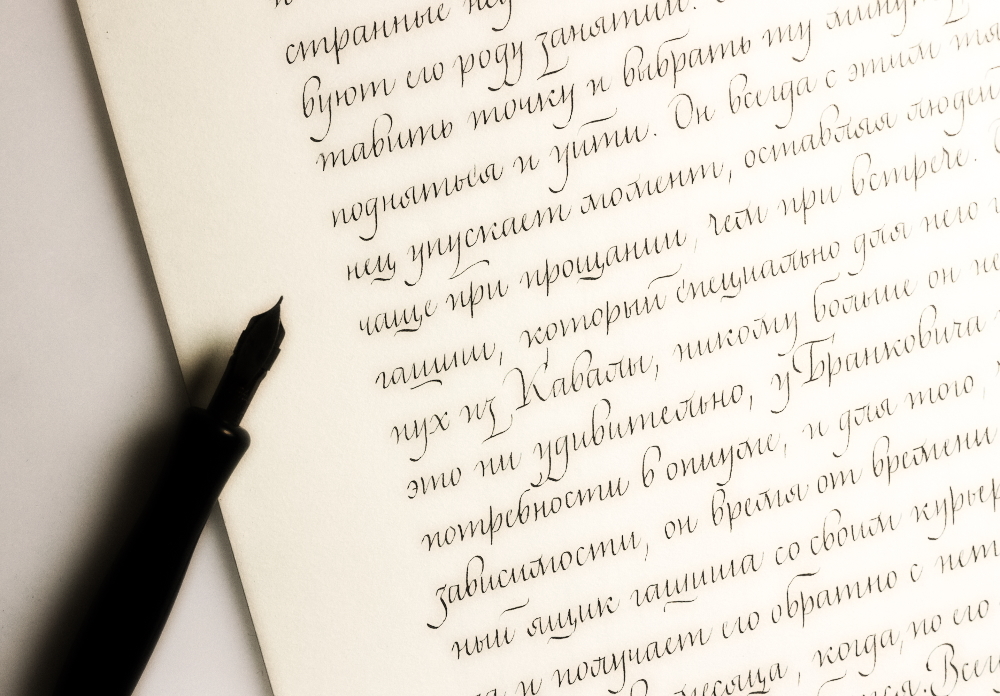 странные
вуют его роду занятий.
тавить точку и выбрать ту
подняться и уйти. Он всегда с этим
нец упускает момент, оставляя людей
чаще при прощании, чем при встрече.
гашиш, который специально для него
пух из Кавалы, никому больше он не
это ни удивительно, у Бранковича
потребности в опиуме, и для того,
зависимости, он время от времени
ный ящик гашиша со своим курьер
и получает его обратно с нет
месяца, когда, по его
Всег